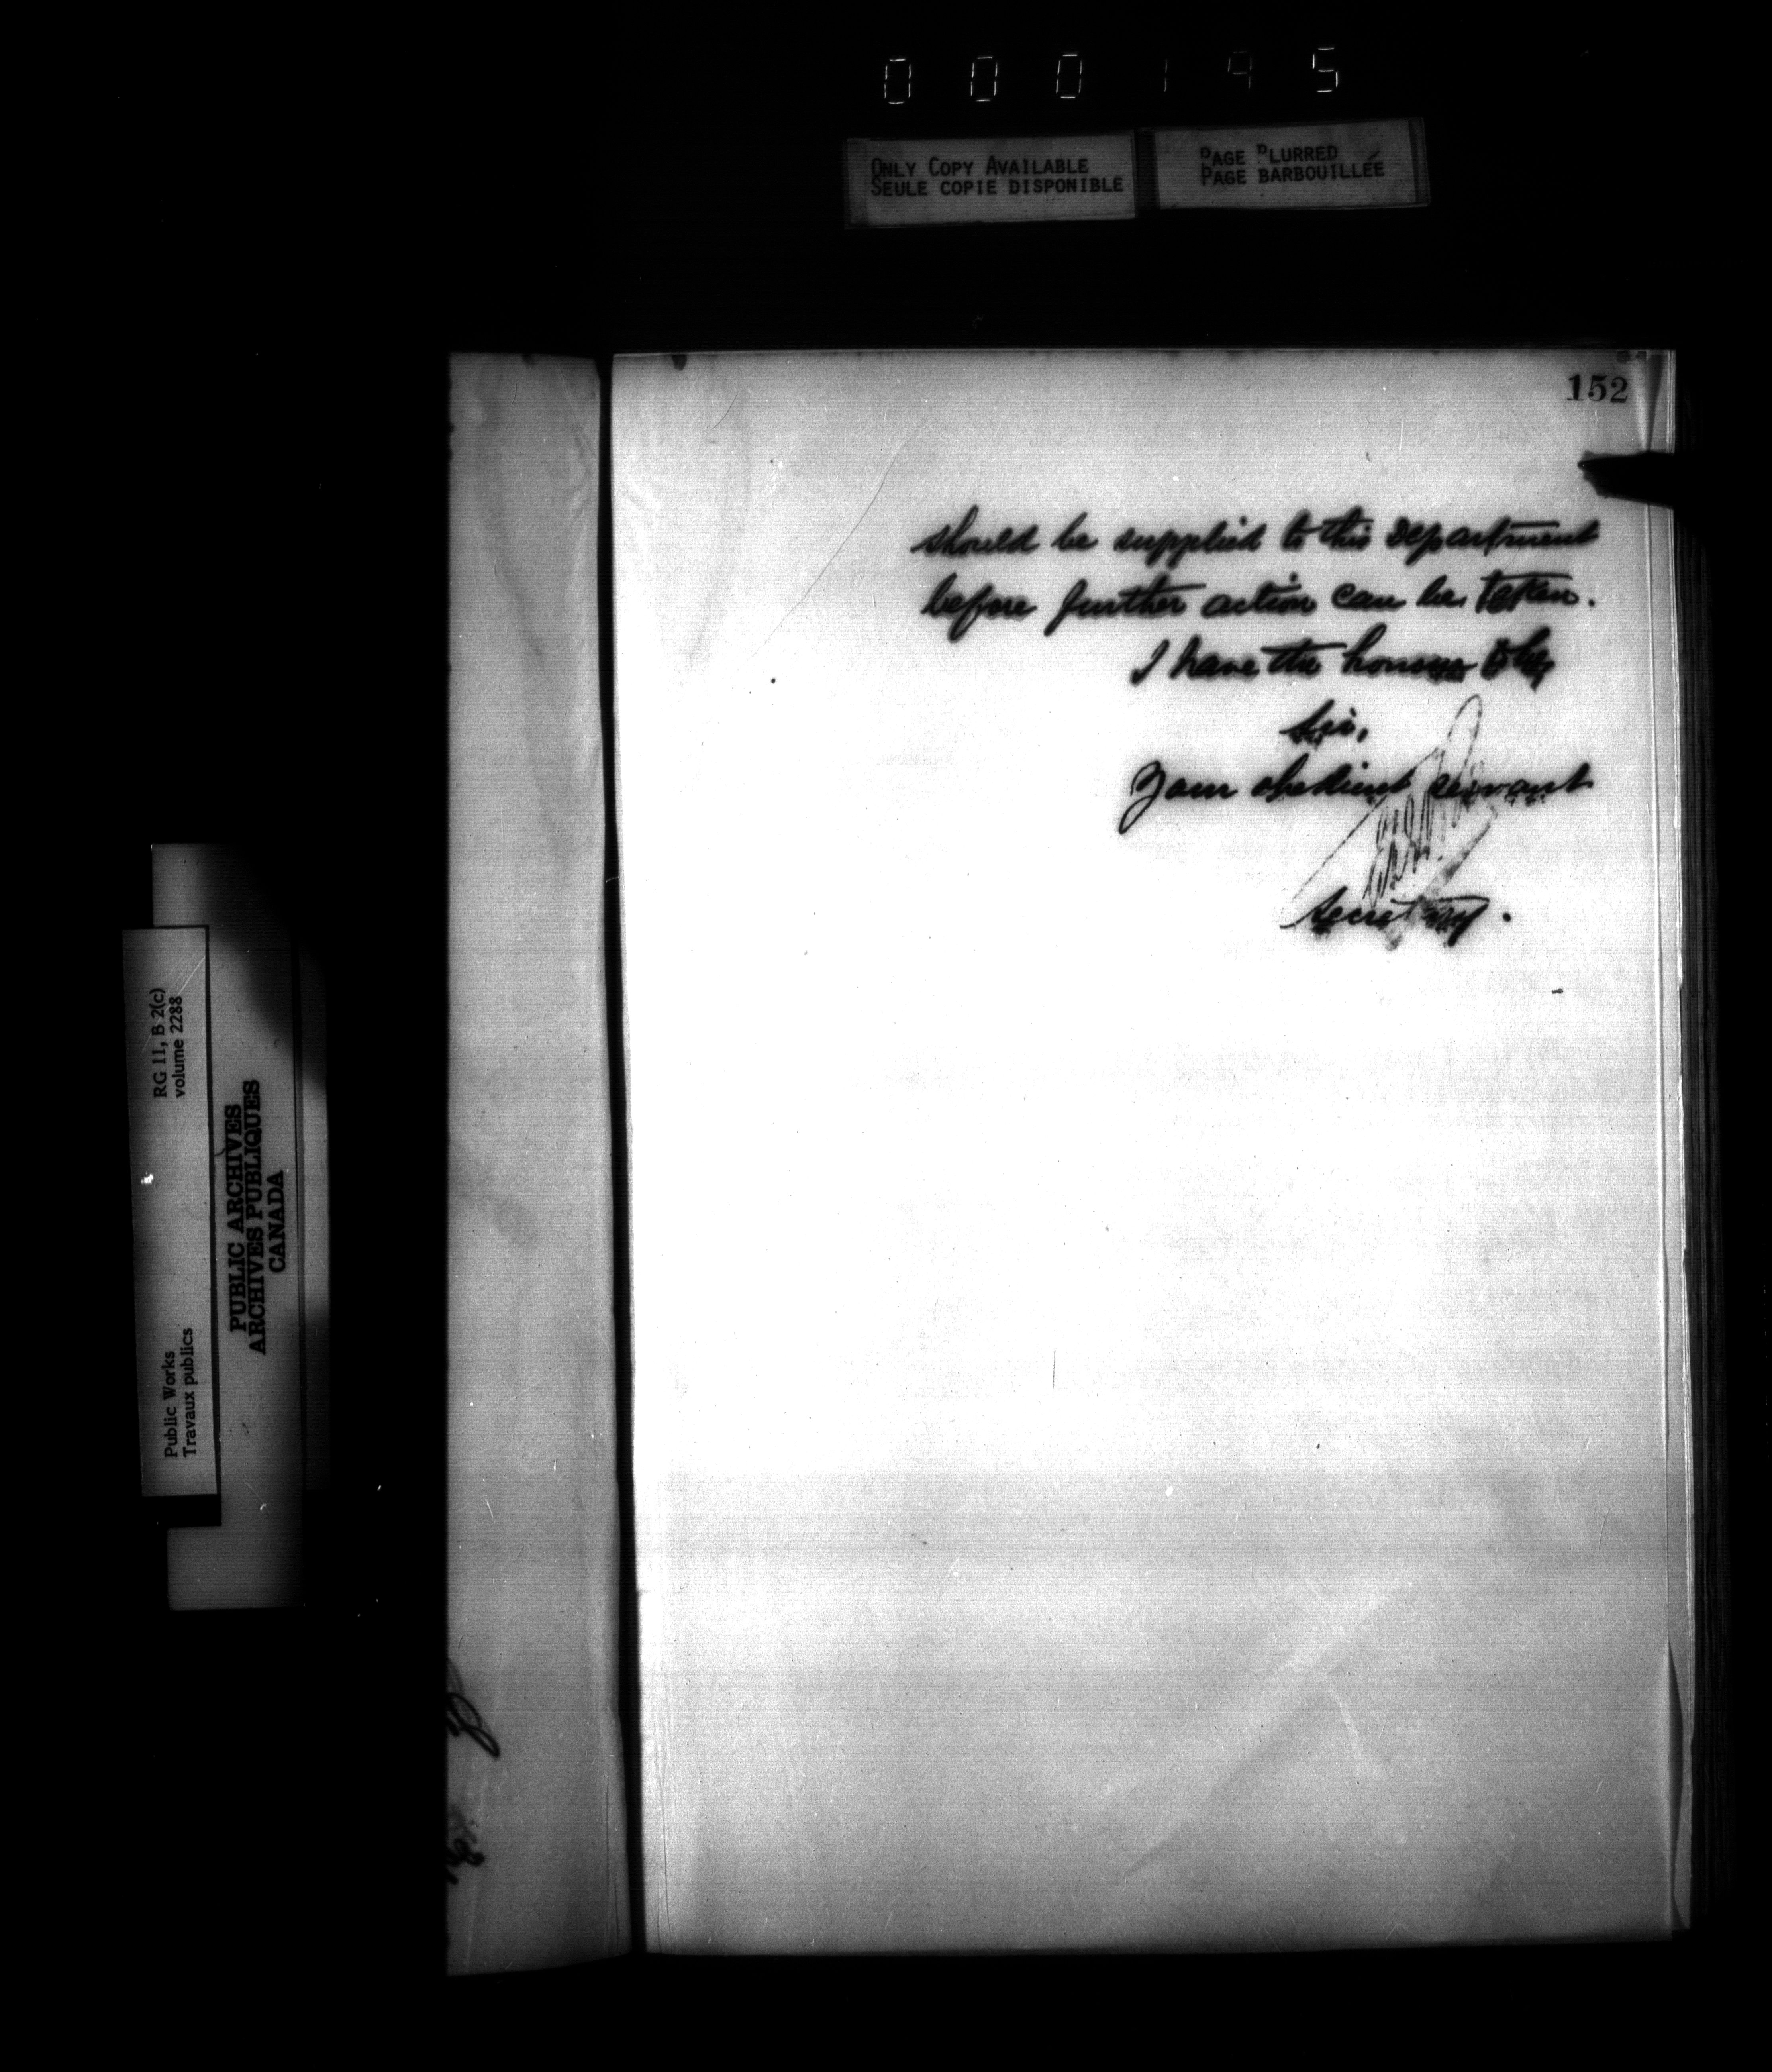 000195
ONLY COPY AVAILABLE
SEULE COPIE DISPONIBLE
PAGE BLURRED
PAGE BARBOUILLÉE
152
should be supplied to this Department
before further action can be taken.
I have the honour to be,
Sir,
Your obedient servant
Secretary.
RG 11, B 2(c)
volume 2288
Public Works
Travaux publics
PUBLIC ARCHIVES
ARCHIVES PUBLIQUES
CANADA